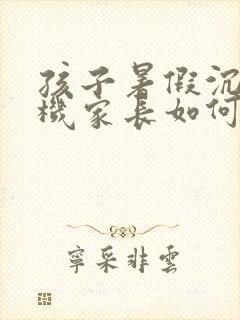 孩子暑假沉
機家長如何
寧采非雲